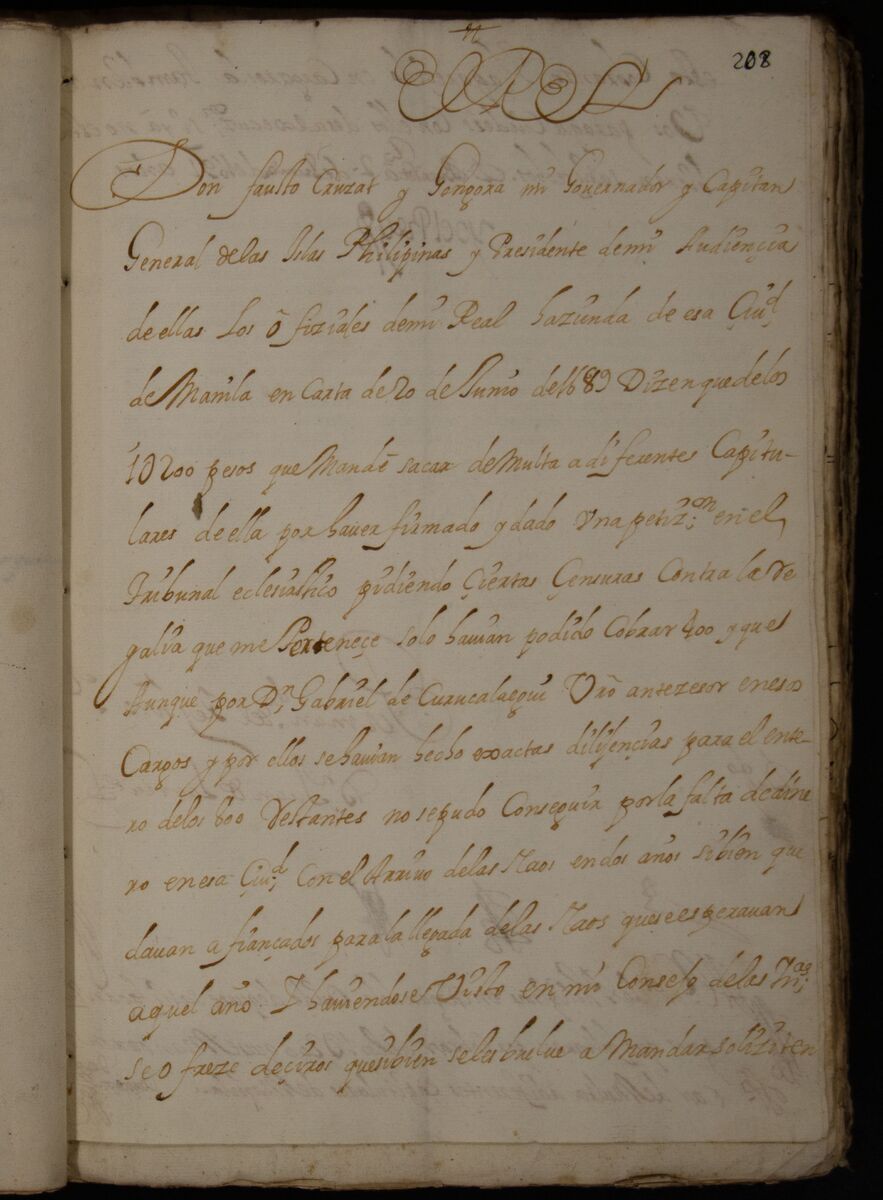 208
El Rey
Don fausto Cruzat y Gongora mi Governador y Capitan
General de las Islas Philipinas y Presidente de mi Audiençia
de ellas Los ofiziales de mi Real hazienda de esa Çiud
de Manila en Carta de 20 de Junio de 1689 Dizen que de los
10200 pesos que Mandè sacar de Multa a diferentes Capitu-
lares de ella por haver firmado y dado Una petizon en el
Tribunal eclesiastico pidiendo Çiertas Çensuras Contra la Re
galia que me Perteneçe solo havian podido Cobrar 400 y que
Aunque por Dn Gabriel de Curucalaegui Vro antezesor en esos
Cargos y por ellos se havian hecho exactas dilijençias para el ente-
ro de los 600 Restantes no se pudo Conseguir por la falta de dine
ro en esa Çiud Con el Arrivo de las Naos en dos años si bien que
davan afiançados para la llegada de las Naos que se esperavan
aquel año. Y haviendose Visto en mi Consejo de las Inas
se ofreze deçiros que si bien se les buelve a Mandar soliziten